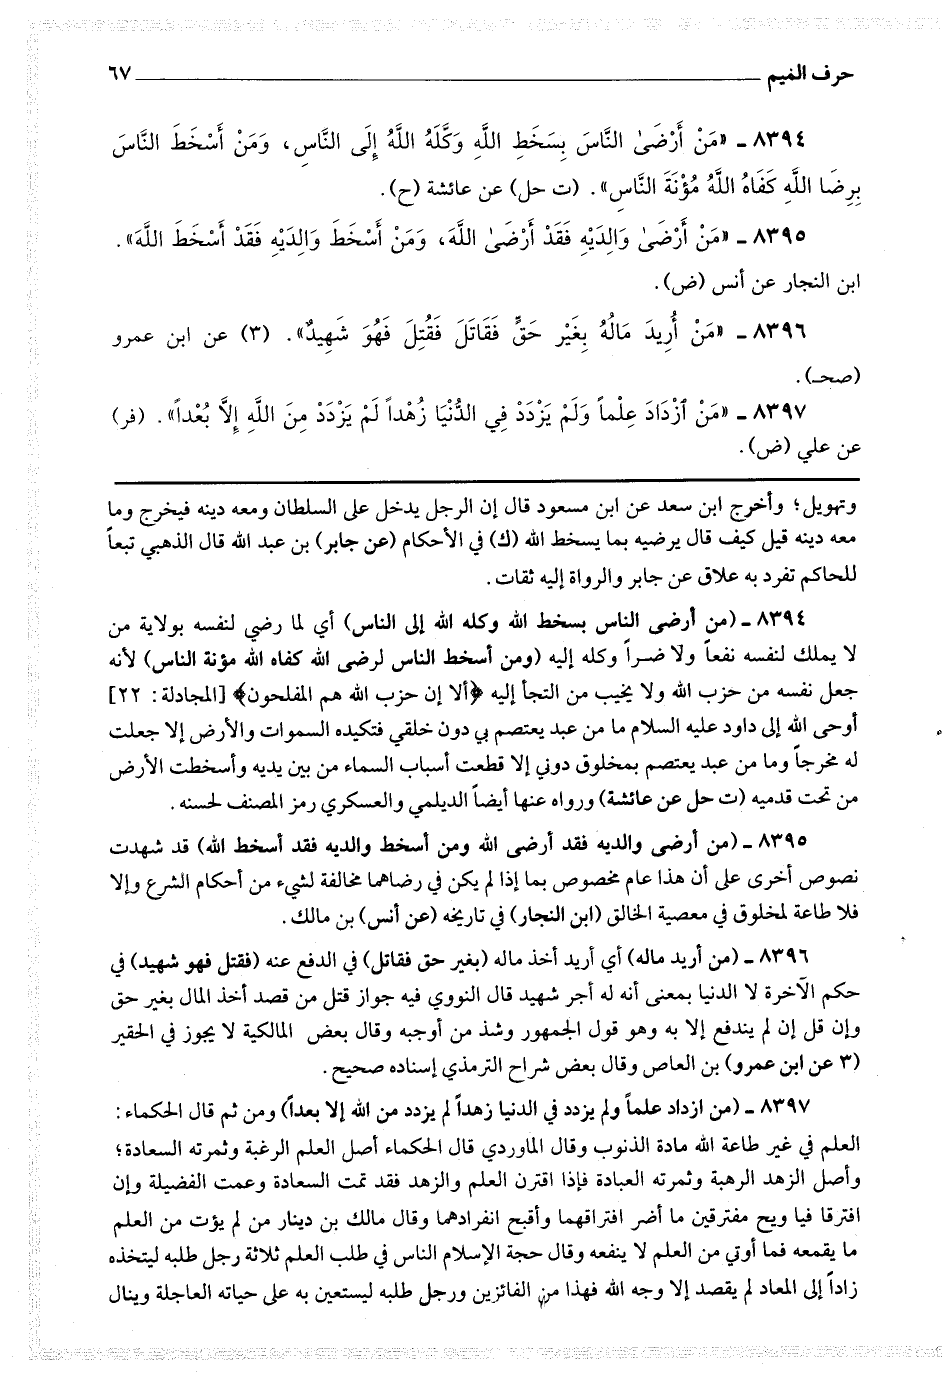 حرف الميم ٦٧
٨٣٩٤ ـ «مَنْ أَرْضَىٰ النَّاسَ بِسَخَطِ اللَّهِ وَكَّلَهُ اللَّهُ إِلَى النَّاسِ، وَمَنْ أَسْخَطَ النَّاسَ
بِرِضَا اللَّهِ كَفَاهُ اللَّهُ مُؤْنَةَ النَّاسِ». (ت حل) عن عائشة (ح).
٨٣٩٥ ـ «مَنْ أَرْضَىٰ وَالِدَيْهِ فَقَدْ أَرْضَىٰ اللَّهَ، وَمَنْ أَسْخَطَ وَالِدَيْهِ فَقَدْ أَسْخَطَ اللَّهَ».
ابن النجار عن أنس (ض).
٨٣٩٦ ـ «مَنْ أُرِيدَ مَالُهُ بِغَيْرِ حَقٍّ فَقَاتَلَ فَقُتِلَ فَهُوَ شَهِيدٌ». (٣) عن ابن عمرو
(صحـ).
٨٣٩٧ ـ «مَنْ ٱزْدَادَ عِلْماً وَلَمْ يَزْدَدْ فِي الدُّنْيَا زُهْداً لَمْ يَزْدَدْ مِنَ اللَّهِ إِلَّا بُعْداً». (فر)
عن علي (ض).
وتهويل؛ وأخرج ابن سعد عن ابن مسعود قال إن الرجل يدخل على السلطان ومعه دينه فيخرج وما
معه دينه قيل كيف قال يرضيه بما يسخط الله (ك) في الأحكام (عن جابر) بن عبد الله قال الذهبي تبعاً
للحاكم تفرد به علاق عن جابر والرواة إليه ثقات.
٨٣٩٤ ـ (من أرضى الناس بسخط الله وكله الله إلى الناس) أي لما رضي لنفسه بولاية من
لا يملك لنفسه نفعاً ولا ضراً وكله إليه (ومن أسخط الناس لرضى الله كفاه الله مؤنة الناس) لأنه
جعل نفسه من حزب الله ولا يخيب من التجأ إليه ﴿ألا إن حزب الله هم المفلحون﴾ [المجادلة: ٢٢]
أوحى الله إلى داود عليه السلام ما من عبد يعتصم بي دون خلقي فتكيده السموات والأرض إلا جعلت
له مخرجاً وما من عبد يعتصم بمخلوق دوني إلا قطعت أسباب السماء من بين يديه وأسخطت الأرض
من تحت قدميه (ت حل عن عائشة) ورواه عنها أيضاً الديلمي والعسكري رمز المصنف لحسنه.
٨٣٩٥ ـ (من أرضى والديه فقد أرضى الله ومن أسخط والديه فقد أسخط الله) قد شهدت
نصوص أخرى على أن هذا عام مخصوص بما إذا لم يكن في رضاهما مخالفة لشيء من أحكام الشرع وإلا
فلا طاعة لمخلوق في معصية الخالق (ابن النجار) في تاريخه (عن أنس) بن مالك.
٨٣٩٦ ـ (من أريد ماله) أي أريد أخذ ماله (بغير حق فقاتل) في الدفع عنه (فقتل فهو شهيد) في
حكم الآخرة لا الدنيا بمعنى أنه له أجر شهيد قال النووي فيه جواز قتل من قصد أخذ المال بغير حق
وإن قل إن لم يندفع إلا به وهو قول الجمهور وشذ من أوجبه وقال بعض المالكية لا يجوز في الحقير
(٣ عن ابن عمرو) بن العاص وقال بعض شراح الترمذي إسناده صحيح.
٨٣٩٧ ـ (من ازداد علماً ولم يزدد في الدنيا زهداً لم يزدد من الله إلا بعداً) ومن ثم قال الحكماء:
العلم في غير طاعة الله مادة الذنوب وقال الماوردي قال الحكماء أصل العلم الرغبة وثمرته السعادة؛
وأصل الزهد الرهبة وثمرته العبادة فإذا اقترن العلم والزهد فقد تمت السعادة وعمت الفضيلة وإن
افترقا فيا ويح مفترقين ما أضر افتراقهما وأقبح انفرادهما وقال مالك بن دينار من لم يؤت من العلم
ما يقمعه فما أوتي من العلم لا ينفعه وقال حجة الإسلام الناس في طلب العلم ثلاثة رجل طلبه ليتخذه
زاداً إلى المعاد لم يقصد إلا وجه الله فهذا من الفائزين ورجل طلبه ليستعين به على حياته العاجلة وينال